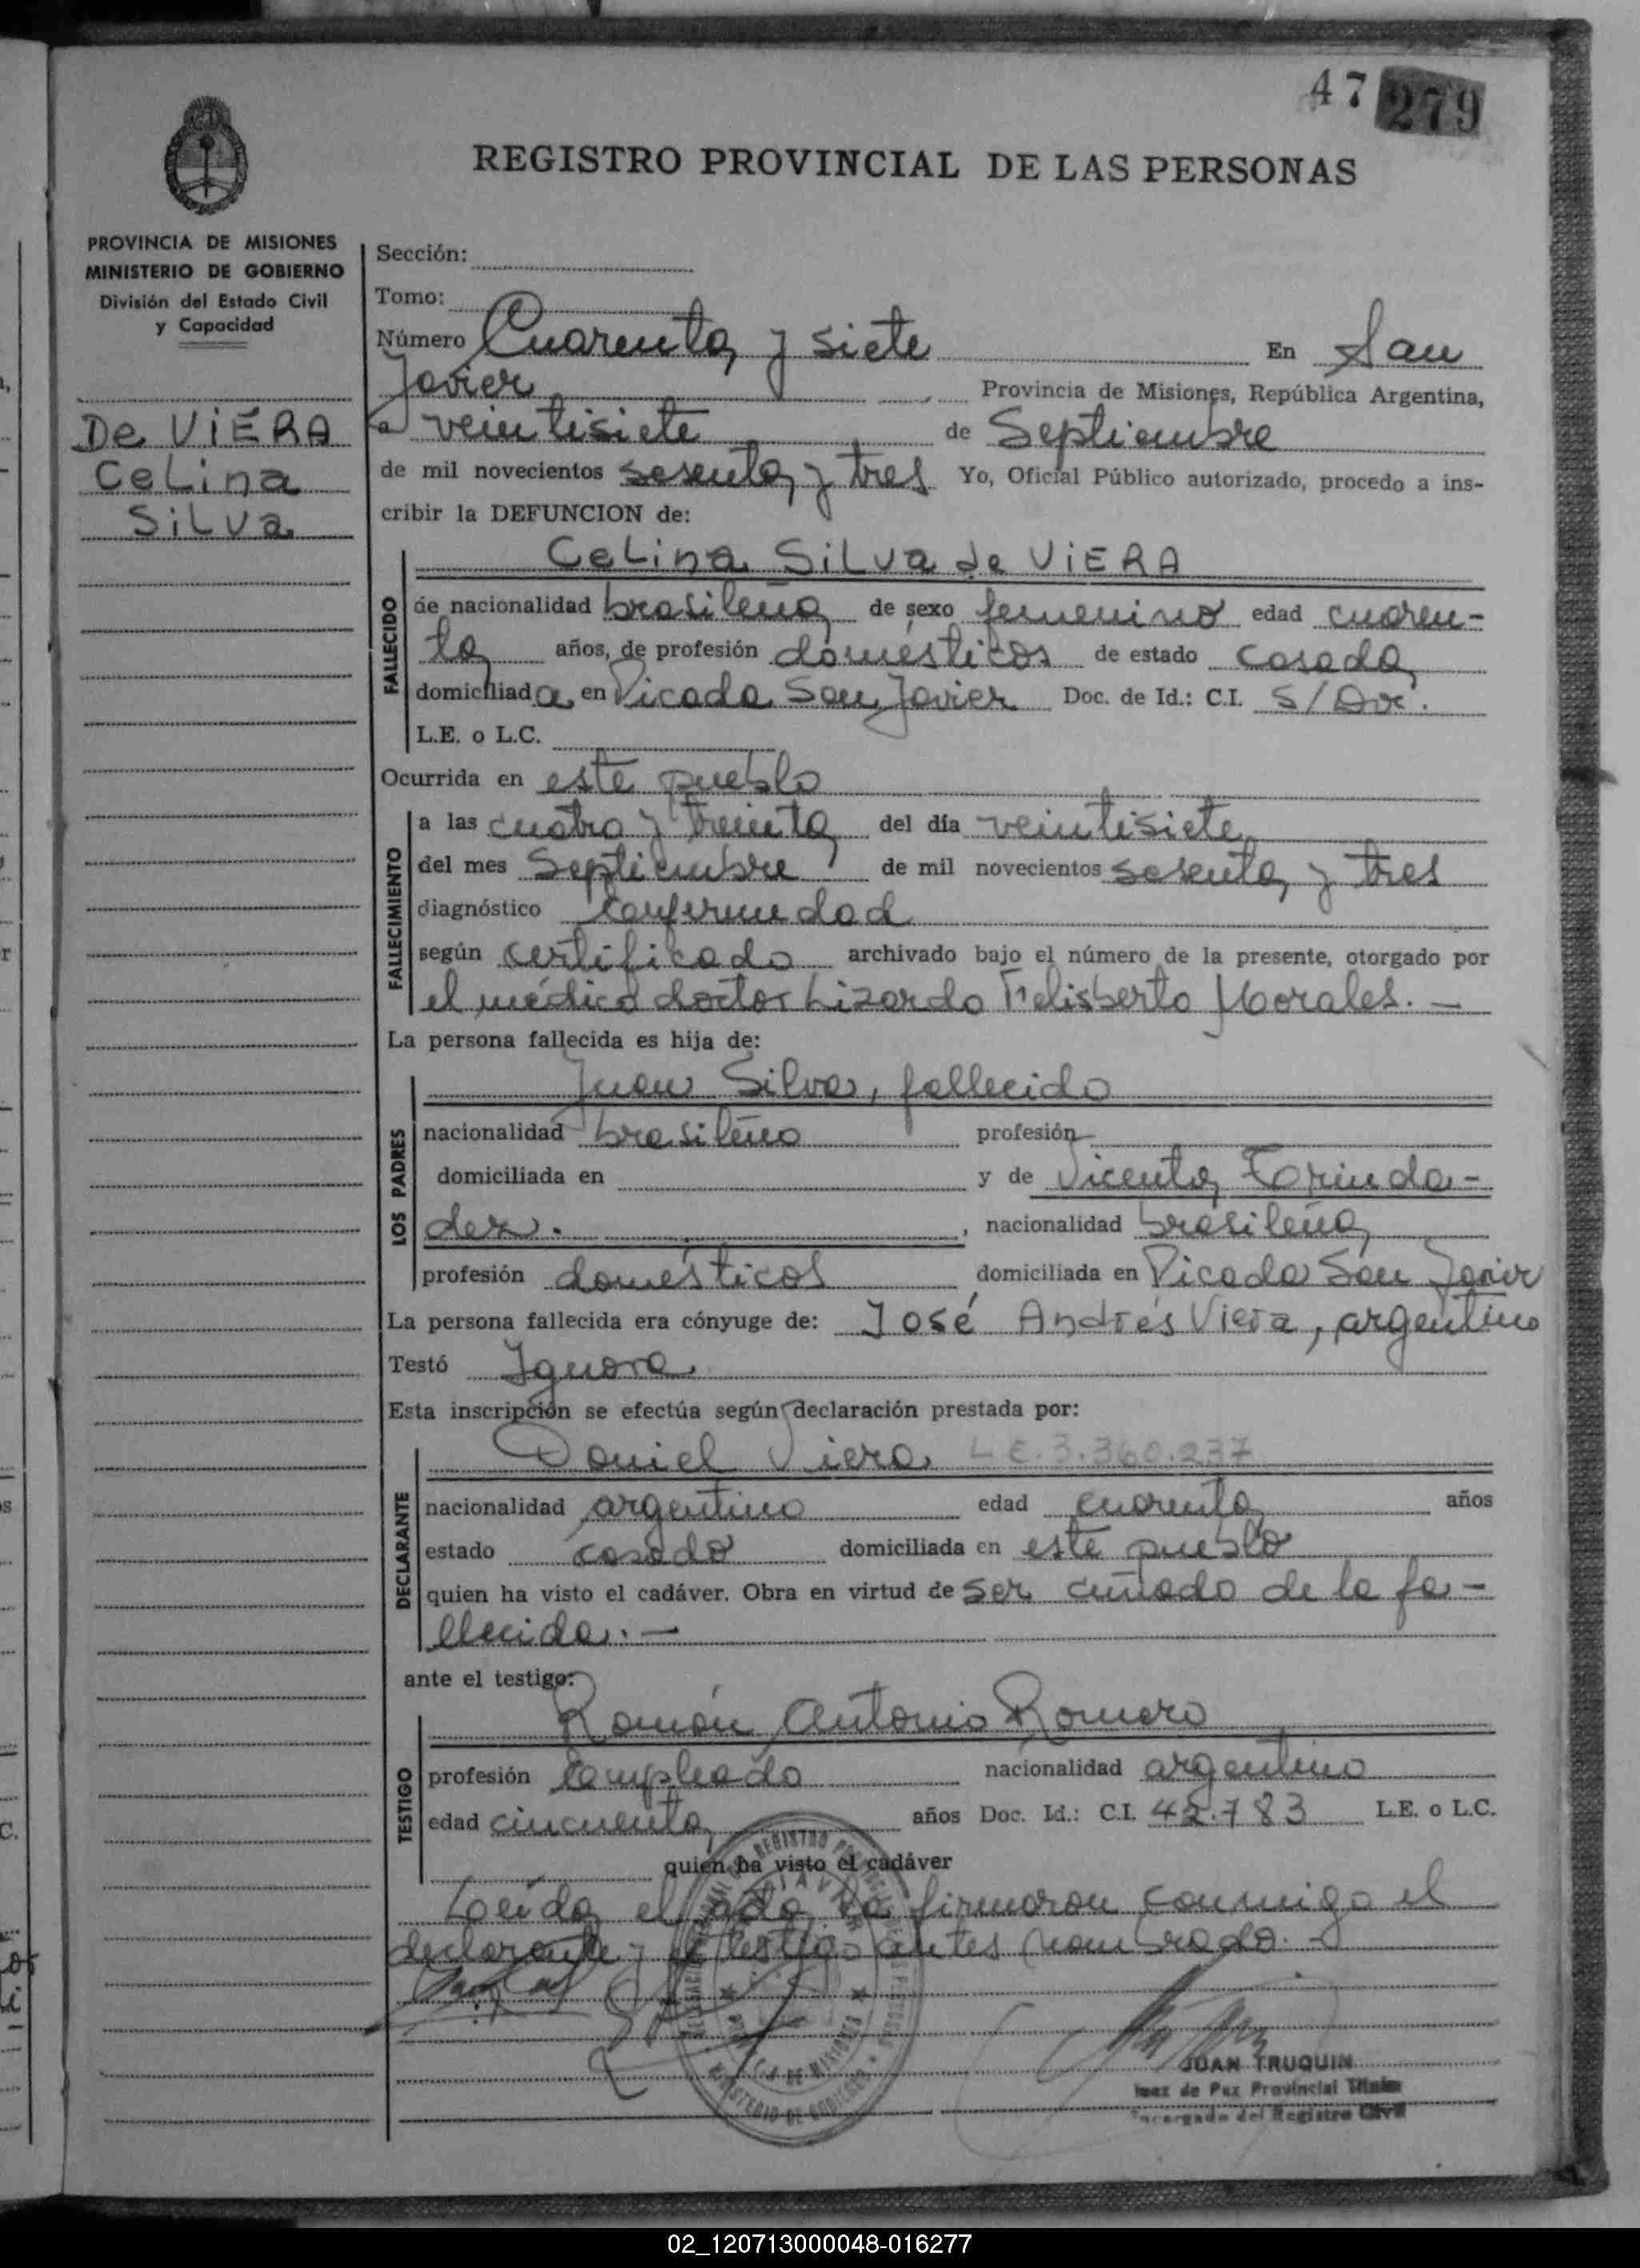 47 279
REGISTRO PROVINCIAL DE LAS PERSONAS
PROVINCIA DE MISIONES
MINISTERIO DE GOBIERNO
División del Estado Civil
y Capacidad
De VIERA
Celina
Silva
Sección:
Tomo:
Número Cuarenta y siete En San
Javier Provincia de Misiones, República Argentina,
a veintisiete de Septiembre
de mil novecientos sesenta y tres Yo, Oficial Público autorizado, procedo a ins-
cribir la DEFUNCION de:
Celina Silva de VIERA
FALLECIDO
de nacionalidad brasileña de sexo femenino edad cuaren-
ta años, de profesión domésticos de estado casada
domiciliada en Picada San Javier Doc. de Id.: C.I. S/Doc.
L.E. o L.C.
Ocurrida en este pueblo
FALLECIMIENTO
a las cuatro y treinta del día veintisiete
del mes Septiembre de mil novecientos sesenta y tres
diagnóstico Enfermedad
según certificado archivado bajo el número de la presente, otorgado por
el médico doctor Lizardo Felisberto Morales. —
La persona fallecida es hija de:
LOS PADRES
Juan Silva, fallecido
nacionalidad brasileño profesión
domiciliada en y de Vicenta Forinda-
dez. , nacionalidad brasileña
profesión domésticos domiciliada en Picada San Javier
La persona fallecida era cónyuge de: José Andrés Viera, argentino
Testó Ignora
Esta inscripción se efectúa según declaración prestada por:
DECLARANTE
Daniel Viera L E. 3.360.237
nacionalidad argentino edad cuarenta años
estado casado domiciliada en este pueblo
quien ha visto el cadáver. Obra en virtud de ser cuñado de la fa-
llecida. —
ante el testigo:
TESTIGO
Ramón Antonio Romero
profesión Empleado nacionalidad argentino
edad cincuenta años Doc. Id.: C.I. 42.783 L.E. o L.C.
quien ha visto el cadáver
Leída el acta la firmaron conmigo el
declarante y el testigo antes nombrado. —
JUAN TRUQUIN
Juez de Paz Provincial Titular
Encargado del Registro Civil
02_120713000048-016277